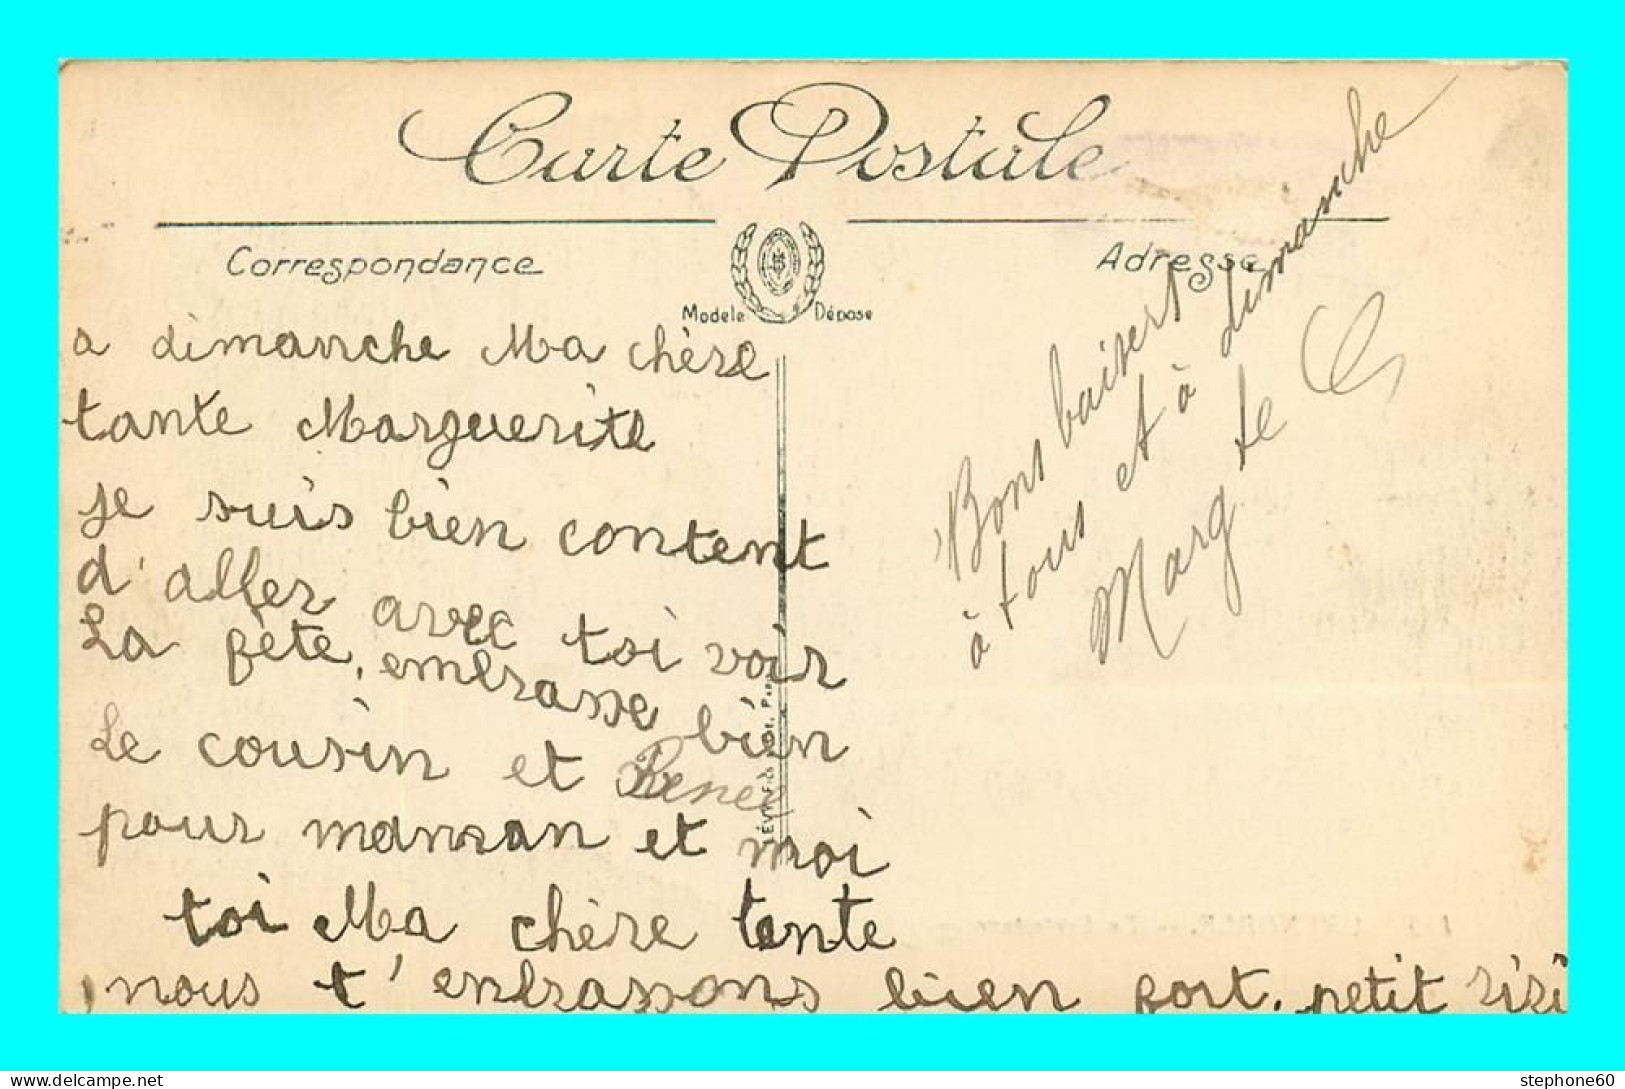 Carte Postale
Correspondance
Adresse
Modele Dépose
a dimanche Ma chère
tante Marguerite
je suis bien content
d'aller avec toi voir
La fête, embrasse bien
Le cousin et Renee
pour manman et moi
toi Ma chère tente
nous t'enbrassons bien fort. petit riri
Bons baisers
à tous et à dimanche
Marg te
stephone60